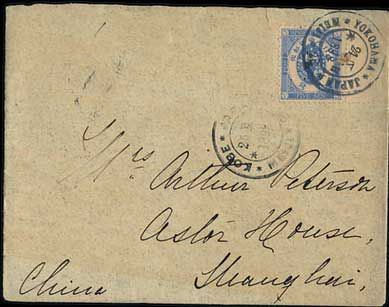 YOKOHAMA JAPAN
KOBE
Mrs Arthur Peterson
Astor House,
China Shanghai,